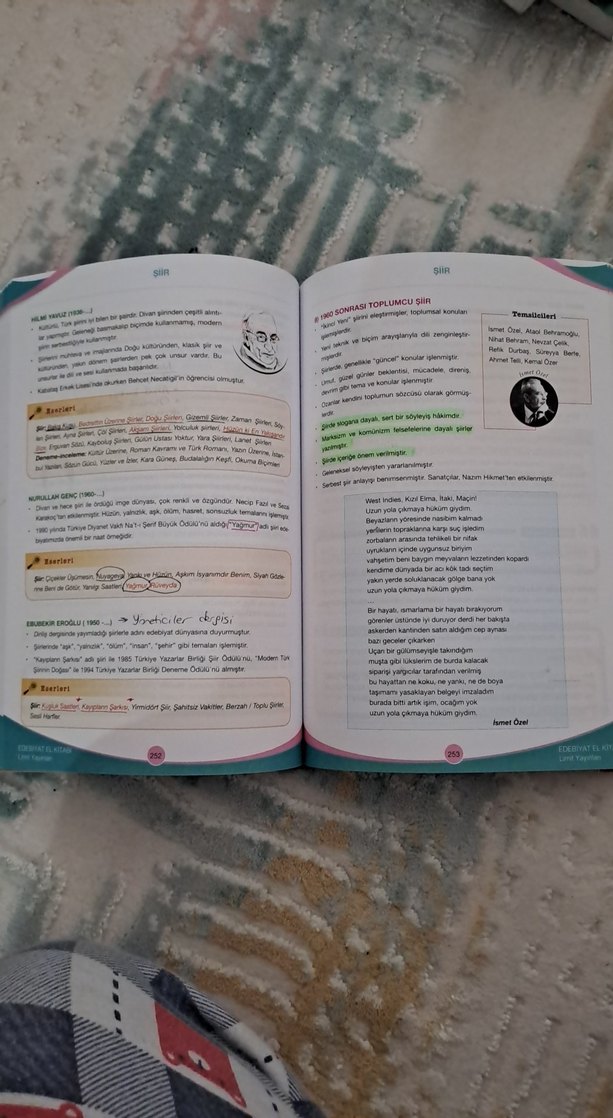 ŞİİR
HİLMİ YAVUZ (1936-...)
• Kültürlü, Türk şiirini iyi bilen bir şairdir. Divan şiirinden çeşitli alıntı-
lar yapmıştır. Geleneği basmakalıp biçimde kullanmamış, modern
şiirin serbestliğiyle kullanmıştır.
• Şiirlerini muhteva ve imajlarında Doğu kültüründen, klasik şiir ve
kültüründen, yakın dönem şairlerden pek çok unsur vardır. Bu
unsurlar ile dil ve sesi kullanmada başarılıdır.
• Kabataş Erkek Lisesi'nde okurken Behçet Necatigil'in öğrencisi olmuştur.
Eserleri
Şiir: Bakış Kuşu, Bedrettin Üzerine Şiirler, Doğu Şiirleri, Gizemli Şiirler, Zaman Şiirleri, Söy-
len Şiirleri, Ayna Şiirleri, Çöl Şiirleri, Akşam Şiirleri, Yolculuk şiirleri, Hüzün ki En Yakışandır
Bize, Erguvan Sözü, Kayboluş Şiirleri, Gülün Ustası Yoktur, Yara Şiirleri, Lanet Şiirleri
Deneme-inceleme: Kültür Üzerine, Roman Kavramı ve Türk Romanı, Yazın Üzerine, İstan-
bul Yazıları, Sözün Gücü, Yüzler ve İzler, Kara Güneş, Budalalığın Keşfi, Okuma Biçimleri
NURULLAH GENÇ (1960-...)
• Divan ve hece şiiri ile ördüğü imge dünyası, çok renkli ve özgündür. Necip Fazıl ve Sezai
Karakoç'tan etkilenmiştir. Hüzün, yalnızlık, aşk, ölüm, hasret, sonsuzluk temalarını işlemiştir.
• 1990 yılında Türkiye Diyanet Vakfı Na't-ı Şerif Büyük Ödülü'nü aldığı "Yağmur" adlı şiiri ede-
biyatımızda önemli bir naat örneğidir.
Eserleri
Şiir: Çiçekler Üşümesin, Nuyageva, Yankı ve Hüzün, Aşkım İsyanımdır Benim, Siyah Gözle-
rine Beni de Götür, Yanılgı Saatleri, Yağmur, Rüveyda
EBUBEKİR EROĞLU ( 1950 -...) → Yöneticiler dergisi
• Diriliş dergisinde yayımladığı şiirlerle adını edebiyat dünyasına duyurmuştur.
• Şiirlerinde "aşk", "yalnızlık", "ölüm", "insan", "şehir" gibi temaları işlemiştir.
• "Kayıpların Şarkısı" adlı şiiri ile 1985 Türkiye Yazarlar Birliği Şiir Ödülü'nü, "Modern Türk
Şiirinin Doğası" ile 1994 Türkiye Yazarlar Birliği Deneme Ödülü'nü almıştır.
Eserleri
Şiir: Kuşluk Saatleri, Kayıpların Şarkısı, Yirmidört Şiir, Şahitsiz Vakitler, Berzah / Toplu Şiirler,
Sesli Harfler
EDEBİYAT EL KİTABI
Limit Yayınları
252
ŞİİR
1960 SONRASI TOPLUMCU ŞİİR
• "İkinci Yeni" şiirini eleştirmişler, toplumsal konuları
işlemişlerdir.
• Yeni teknik ve biçim arayışlarıyla dili zenginleştir-
mişlerdir.
• Şiirlerde, genellikle "güncel" konular işlenmiştir.
• Umut, güzel günler beklentisi, mücadele, direniş,
devrim gibi tema ve konular işlenmiştir.
• Ozanlar kendini toplumun sözcüsü olarak görmüş-
lerdir.
• Şiirde slogana dayalı, sert bir söyleyiş hâkimdir.
• Marksizm ve komünizm felsefelerine dayalı şiirler
yazılmıştır.
• Şiirde içeriğe önem verilmiştir.
• Geleneksel söyleyişten yararlanılmıştır.
• Serbest şiir anlayışı benimsenmiştir. Sanatçılar, Nazım Hikmet'ten etkilenmiştir.
Temsilcileri
İsmet Özel, Ataol Behramoğlu,
Nihat Behram, Nevzat Çelik,
Refik Durbaş, Süreyya Berfe,
Ahmet Telli, Kemal Özer
İsmet Özel
West Indies, Kızıl Elma, İtaki, Maçin!
Uzun yola çıkmaya hüküm giydim.
Beyazların yöresinde nasibim kalmadı
yerlilerin topraklarına karşı suç işledim
zorbaların arasında tehlikeli bir nifak
uyrukların içinde uygunsuz biriyim
vahşetim beni baygın meyvaların lezzetinden kopardı
kendime dünyada bir acı kök tadı seçtim
yakın yerde soluklanacak gölge bana yok
uzun yola çıkmaya hüküm giydim.
...
Bir hayatı, ısmarlama bir hayatı bırakıyorum
görenler üstünde iyi duruyor derdi her bakışta
askerden kantinden satın aldığım cep aynası
bazı geceler çıkarken
Uçarı bir gülümseyişle takındığım
muşta gibi lükslerim de burda kalacak
siparişi yargıcılar tarafından verilmiş
bu hayattan ne koku, ne yankı, ne de boya
taşımamı yasaklayan belgeyi imzaladım
burada bitti artık işim, ocağım yok
uzun yola çıkmaya hüküm giydim.
İsmet Özel
253
EDEBİYAT EL KİT
Limit Yayınları